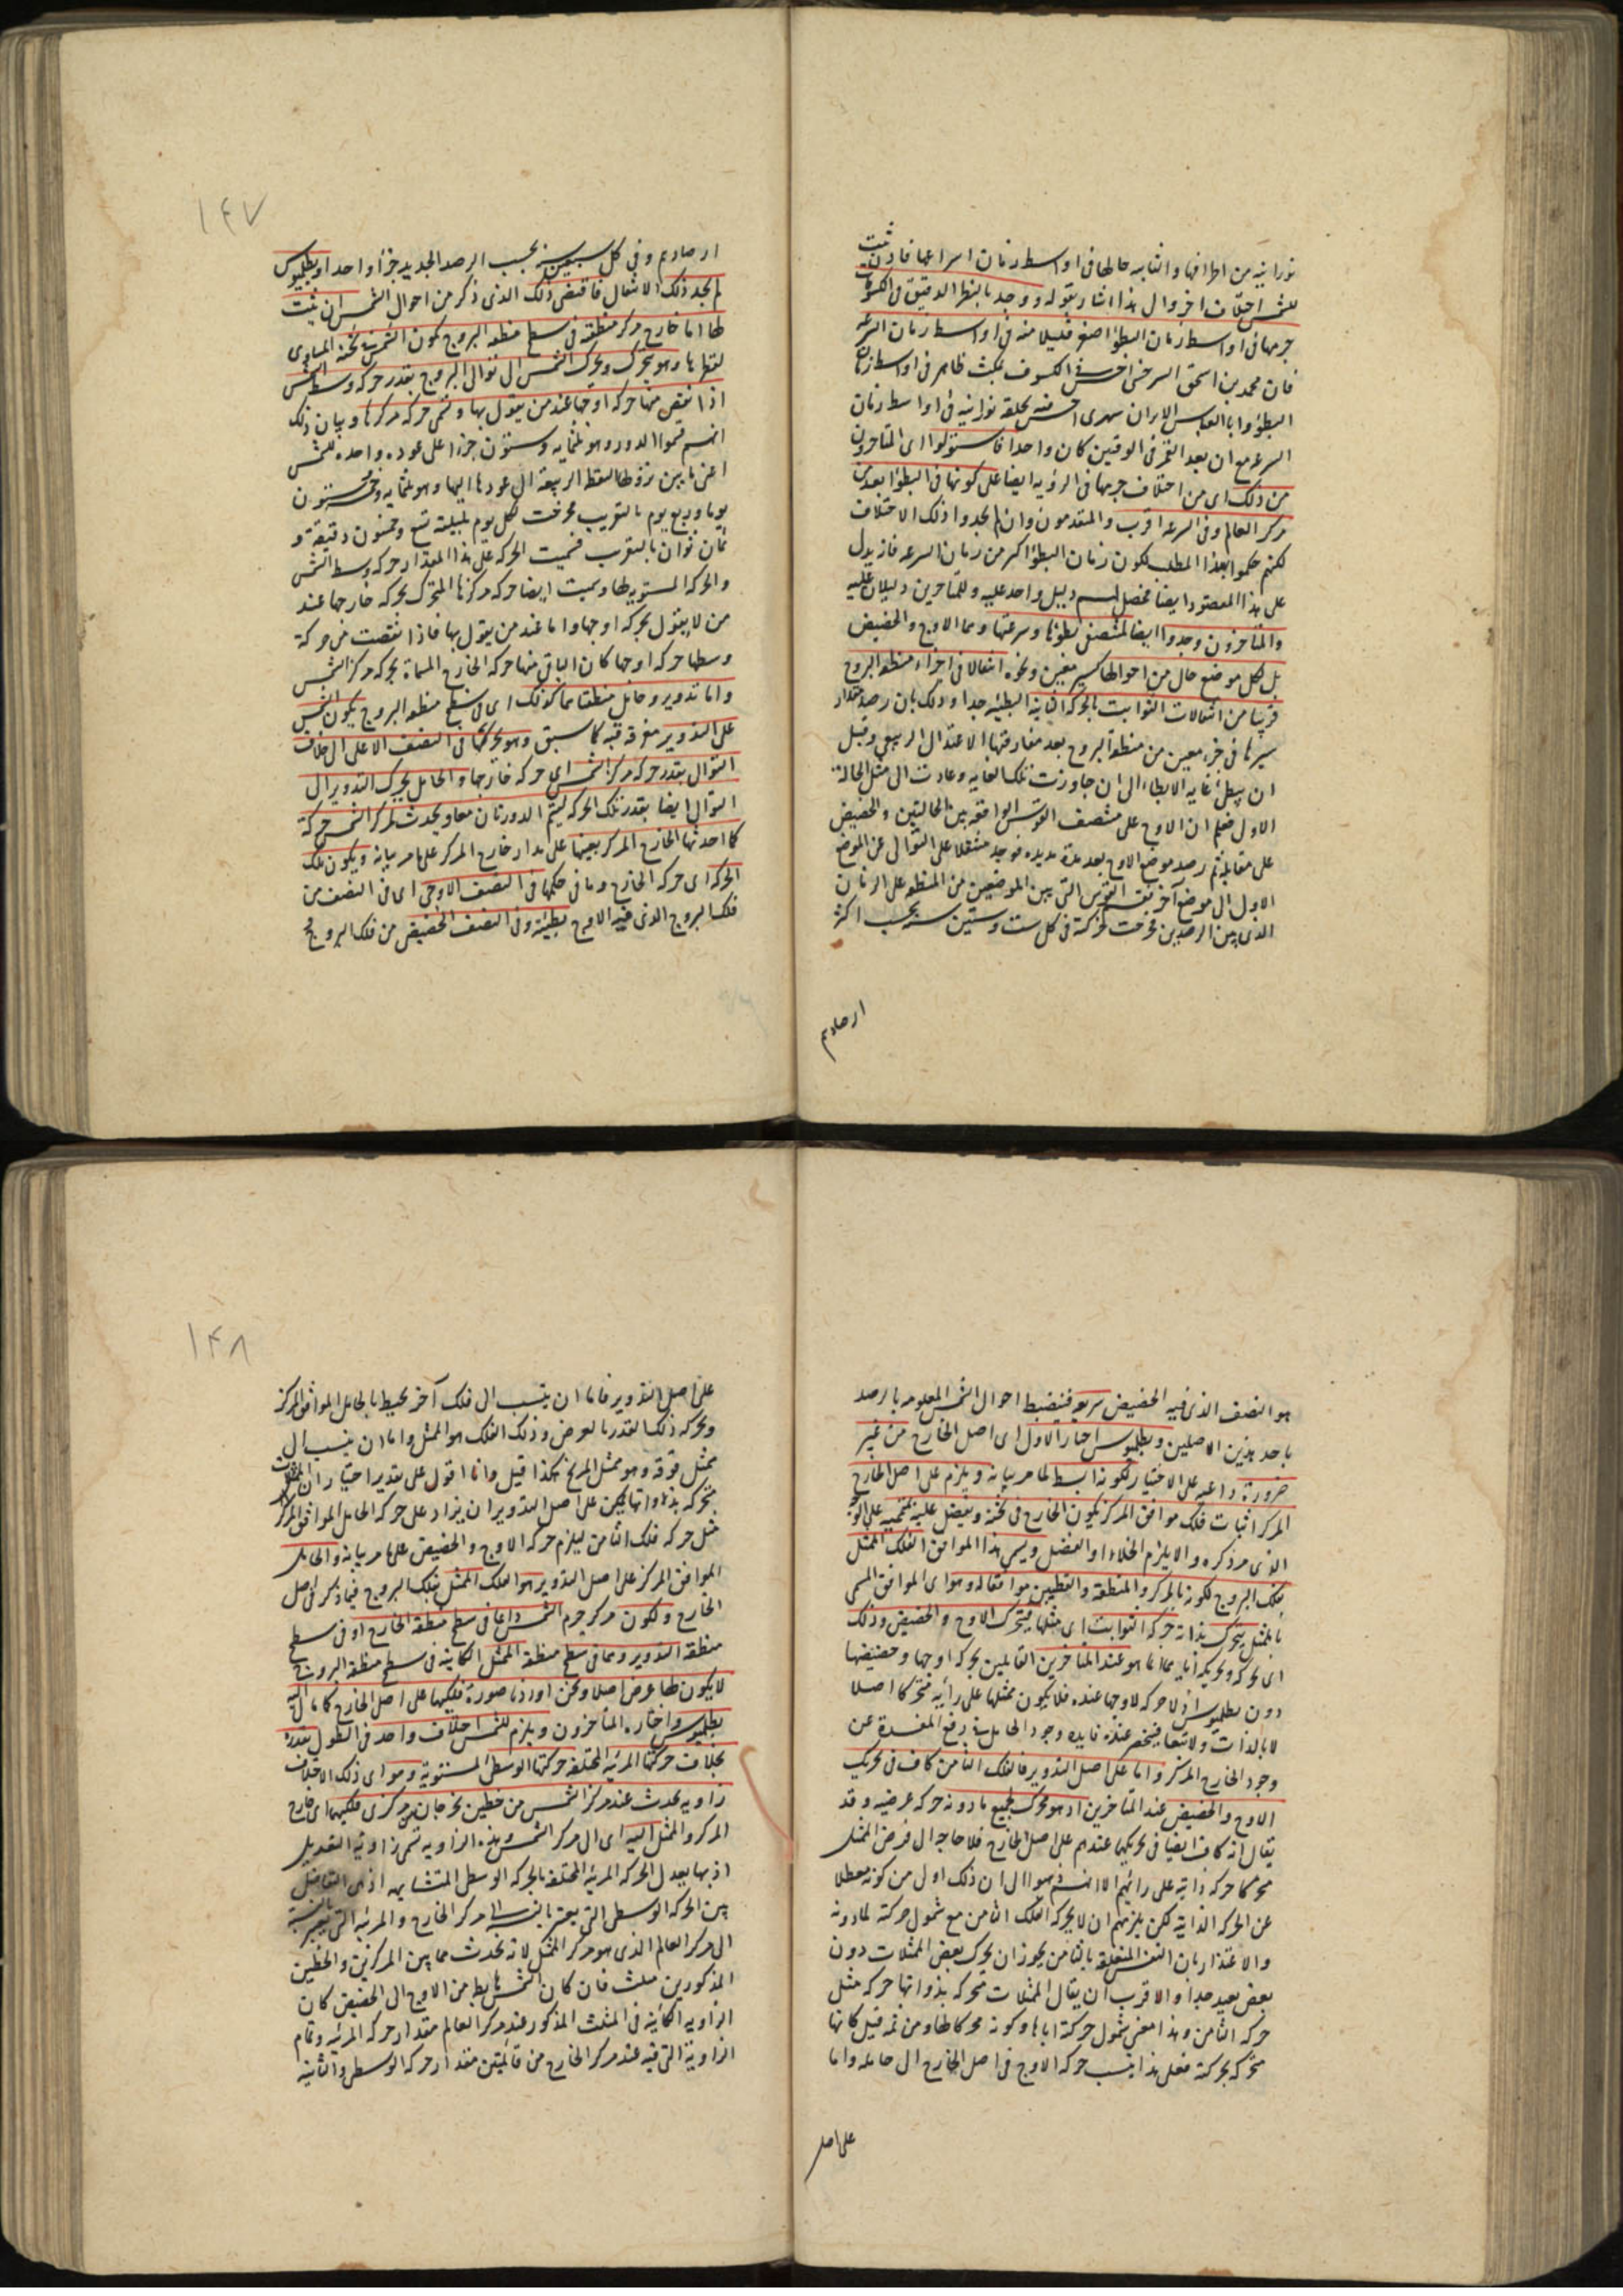 نورانية من اطرافها والثانية حالها فى اواسط زمان اسراعها فاذن ثبت
للشمس اختلاف اخر والى هذا اشار بقوله ووجد بالنظر الدقيق فى الكسوفات
جرمها فى اواسط زمان البطؤ اصغر قليلا منه فى اواسط زمان السرعه
فان محمد بن اسحق السرخسى الكسوف بمكث ظاهر فى اواسط زمان
البطؤ وابا العباس الايرانشهرى منه بحلقه نورانيه فى اواسط زمان
السرعه مع ان بعد القمر فى الوقتين كان واحدا فاستدلوا اى المتاخرون
من ذلك اى من اختلاف جرمها فى الرؤيه ايضا على كونها فى البطؤ ابعد من
مركز العالم وفى السرعه اقرب والمتقدمون وان لم يجدوا ذلك الاختلاف
لكنهم حكموا بهذا المطلب لكون زمان البطؤ اكبر من زمان السرعه فانه يدل
على هذا المقصود ايضا فحصل لهم دليل واحد عليه وللمتاخرين دليلان عليه
والمتاخرون وجدوا ايضا لمنتصفى بطؤها وسرعتها وهما الاوج والحضيض
بل لكل موضع حال من احوالها كسير معين ونحوه انتقالا فى اجزاء منطقة البروج
قريبا من انتقالات الثوابت بالحركه الثانية البطيئه جدا وذلك بان رصد مقدار
سيرها فى جزء معين من منطقة البروج بعد مفارقتها الاعتدال الربيعى وقبل
ان يبطئ غايه الابطاء الى ان جاوزت تلك الغايه وعادت الى مثل الحاله
الاولى فعلم ان الاوج على منتصف القوس الواقعه بين الحالتين والحضيض
على مقابلته ثم رصد موضع الاوج بعد مدة مديده فوجد منتقلا على التوالى عن الموضع
الاول الى موضع آخر بقسمة القوس التى بين الموضعين من المنطقه على الزمان
الذى بين الرصدين فخرجت حركته فى كل ست وستين سنة بحسب اكثر
ارصادهم
١٤٧
ارصادهم وفى كل سبعين سنة بحسب الرصد الجديد جزأ واحدا وبطلميوس
لم يجد ذلك الانتقال فاقتضى ذلك الذى ذكر من احوال الشمس ان يثبت
لها اما خارج مركز منطقته فى سطح منطقة البروج تكون الشمس فى ثخنه المساوى
لقطرها وهو يتحرك ويحرك الشمس الى توالى البروج بقدر حركه وسط الشمس
اذا نقص منها حركه اوجها عند من يقول بها وتسمى حركه مركزها وبيان ذلك
انهم قسموا الدور وهو ثلثمايه وستون جزءا على عوده واحده للشمس
اعنى ما بين نزولها لنقطه الربيعية الى عودها اليها وهو ثلثمايه وخمسه وستون
يوما وربع يوم بالتقريب فخرجت لكل يوم بليلته تسع وخمسون دقيقة و
ثمان ثوان بالتقريب فسميت الحركه على هذا المقدار حركه وسط الشمس
والحركه المستويه لها وسميت ايضا حركه مركزها المتحرك بحركه خارجها عند
من لا يقول بحركه اوجها واما عند من يقول بها فاذا انتقصت من حركة
وسطها حركه اوجها كان الباقى منها حركه الخارج المسماة بحركه مركز الشمس
واما تدوير وحامل منطقتاهما كذلك اى فى سطح منطقة البروج يكون الشمس
على التدوير مغرقه فيه كما سبق وهو يحركها فى النصف الاعلى الى خلاف
التوالى بقدر حركه مركز الشمس اى حركه خارجها والحامل يحرك التدوير الى
التوالى ايضا بقدر تلك الحركه ليتم الدورتان معا ويحدث لمركز الشمس حركة
كما احدثها الخارج المركز بعينها على مدار خارج المركز على ما مر بيانه ويكون تلك
الحركه اى حركه الخارج وما فى حكمها فى النصف الاوجى اى فى النصف من
فلك البروج الذى فيه الاوج بطيئة وفى النصف الحضيضى من فلك البروج
هو النصف الذى فيه الحضيض سريعه فينضبط احوال الشمس المعلومه بالرصد
باحد هذين الاصلين وبطلميوس اختار الاول اى اصل الخارج من غير
ضرورة داعيه على الاختيار لكونه ابسط لما مر بيانه ويلزم على اصل الخارج
المركز اثبات فلك موافق المركز يكون الخارج فى ثخنه ويفضل عليه بمتمميه على الوجه
الذى مر ذكره والا يلزم الخلاء او الفضل ويسمى هذا الموافق الفلك الممثل
بفلك البروج لكونه بالمركز والمنطقة والقطبين موافقا له وهو اى الموافق المسمى
بالممثل يتحرك بذاته حركه الثوابت اى مثلها فيتحرك الاوج والحضيض وذلك
اى تحركه وتحريكه اياهما انما هو عند المتاخرين القايلين بحركه اوجها وحضيضها
دون بطلميوس اذ لا حركه لاوجها عنده فلا يكون ممثلها على رأيه متحركا اصلا
لا بالذات ولا تبعا فينحصر عنده فايده وجود الحامل فى رفع المفسدة عن
وجود الخارج المركز واما على اصل التدوير فالفلك الثامن كاف فى تحريك
الاوج والحضيض عند المتاخرين اذ هو محرك لجميع ما دونه حركه عرضيه وقد
يقال انه كاف ايضا فى تحريكهما عندهم على اصل الخارج فلا حاجه الى فرض الممثل
محركا حركه ذاتيه على رائهم الا انهم ذهبوا الى ان ذلك اولى من كونه معطلا
عن الحركه الذاتيه لكن يلزمهم ان لا يحركه الفلك الثامن مع شمول حركته لما دونه
والاعتذار بان النفس المتعلقه بالثامن يجوز ان يحرك بعض الممثلات دون
بعض بعيد جدا والاقرب ان يقال الممثلات متحركه بذواتها حركه مثل
حركه الثامن وهذا معنى شمول حركته اياها وكونه محركا لها ومن ثمه قيل كانها
متحركه بحركته فعلى هذا ينسب حركه الاوج فى اصل الخارج الى حامله واما
على اصل
١٤٨
على اصل التدوير فاما ان ينسب الى فلك آخر يحيط بالحامل الموافق المركز
ويحركه ذلك القدر بالعرض وذلك الفلك هو الممثل واما ان ينسب الى
ممثل فوقه وهو ممثل المريخ هكذا قيل وانا اقول على تقدير اختيار ان الممثلات
متحركه بذواتها يمكن على اصل التدوير ان يزاد على حركه الحامل الموافق المركز
مثل حركه فلك الثامن ليلزم حركه الاوج والحضيض على ما مر بيانه والحامل
الموافق المركز على اصل التدوير هو الفلك الممثل بفلك البروج فيما ذكر فى اصل
الخارج ولكون مركز جرم الشمس دائما فى سطح منطقة الخارج او فى سطح
منطقة التدوير وهما فى سطح منطقة الممثل الكاينه فى سطح منطقة البروج
لا يكون لها عرض اصلا ونحن اوردنا صورة فلكيها على اصل الخارج كما مال اليه
بطلميوس واختاره المتاخرون ويلزم للشمس اختلاف واحد فى الطول بقدره
يخالف حركتها المرئيه المختلفه حركتها الوسطى المستوية وهو اى ذلك الاختلاف
زاويه تحدث عند مركز الشمس من خطين يخرجان من مركزى فلكيها اى خارج
المركز والممثل اليه اى الى مركز الشمس وهذه الزاويه تسمى زاوية التعديل
اذ بها يعدل الحركه المرئيه المختلفه بالحركه الوسطى المتشابهه اذ هى التفاضل
بين الحركه الوسطى التى يعتبر بالنسبه الى مركز الخارج والمرئيه التى تعتبر بالنسبه
الى مركز العالم الذى هو مركز الممثل لانه يحدث مما بين المركزين والخطين
المذكورين مثلث فان كان الشمس هابطه من الاوج الى الحضيض كان
الزاويه الكائنه فى المثلث المذكور عند مركز العالم مقدار حركه المرئيه وتمام
الزاوية التى فيه عند مركز الخارج من قائمتين مقدار حركه الوسطى والثانية